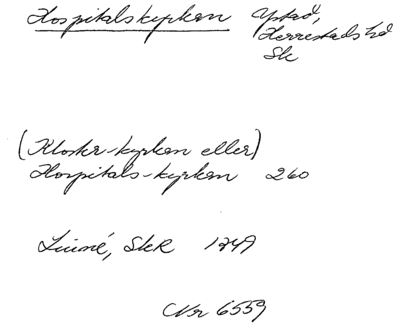 Hospitalskyrkan Ystad,
Herrestads hd
Sk
(Kloster-kyrkan eller)
Hospitals-kyrkan 260
Linné, SkR 1749
Nr 6559